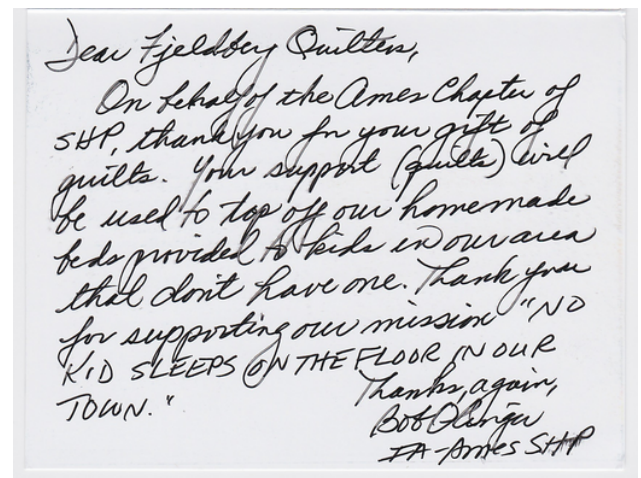 Dear Fjeldberg Quilters,
On behalf of the Ames Chapter of
SHP, thank you for your gift of
quilts. Your support (quilts) will
be used to top off our homemade
beds provided to kids in our area
that don't have one. Thank you
for supporting our mission "NO
KID SLEEPS ON THE FLOOR IN OUR
TOWN."
Thanks, again,
Bob Olinger
IA-Ames SHP